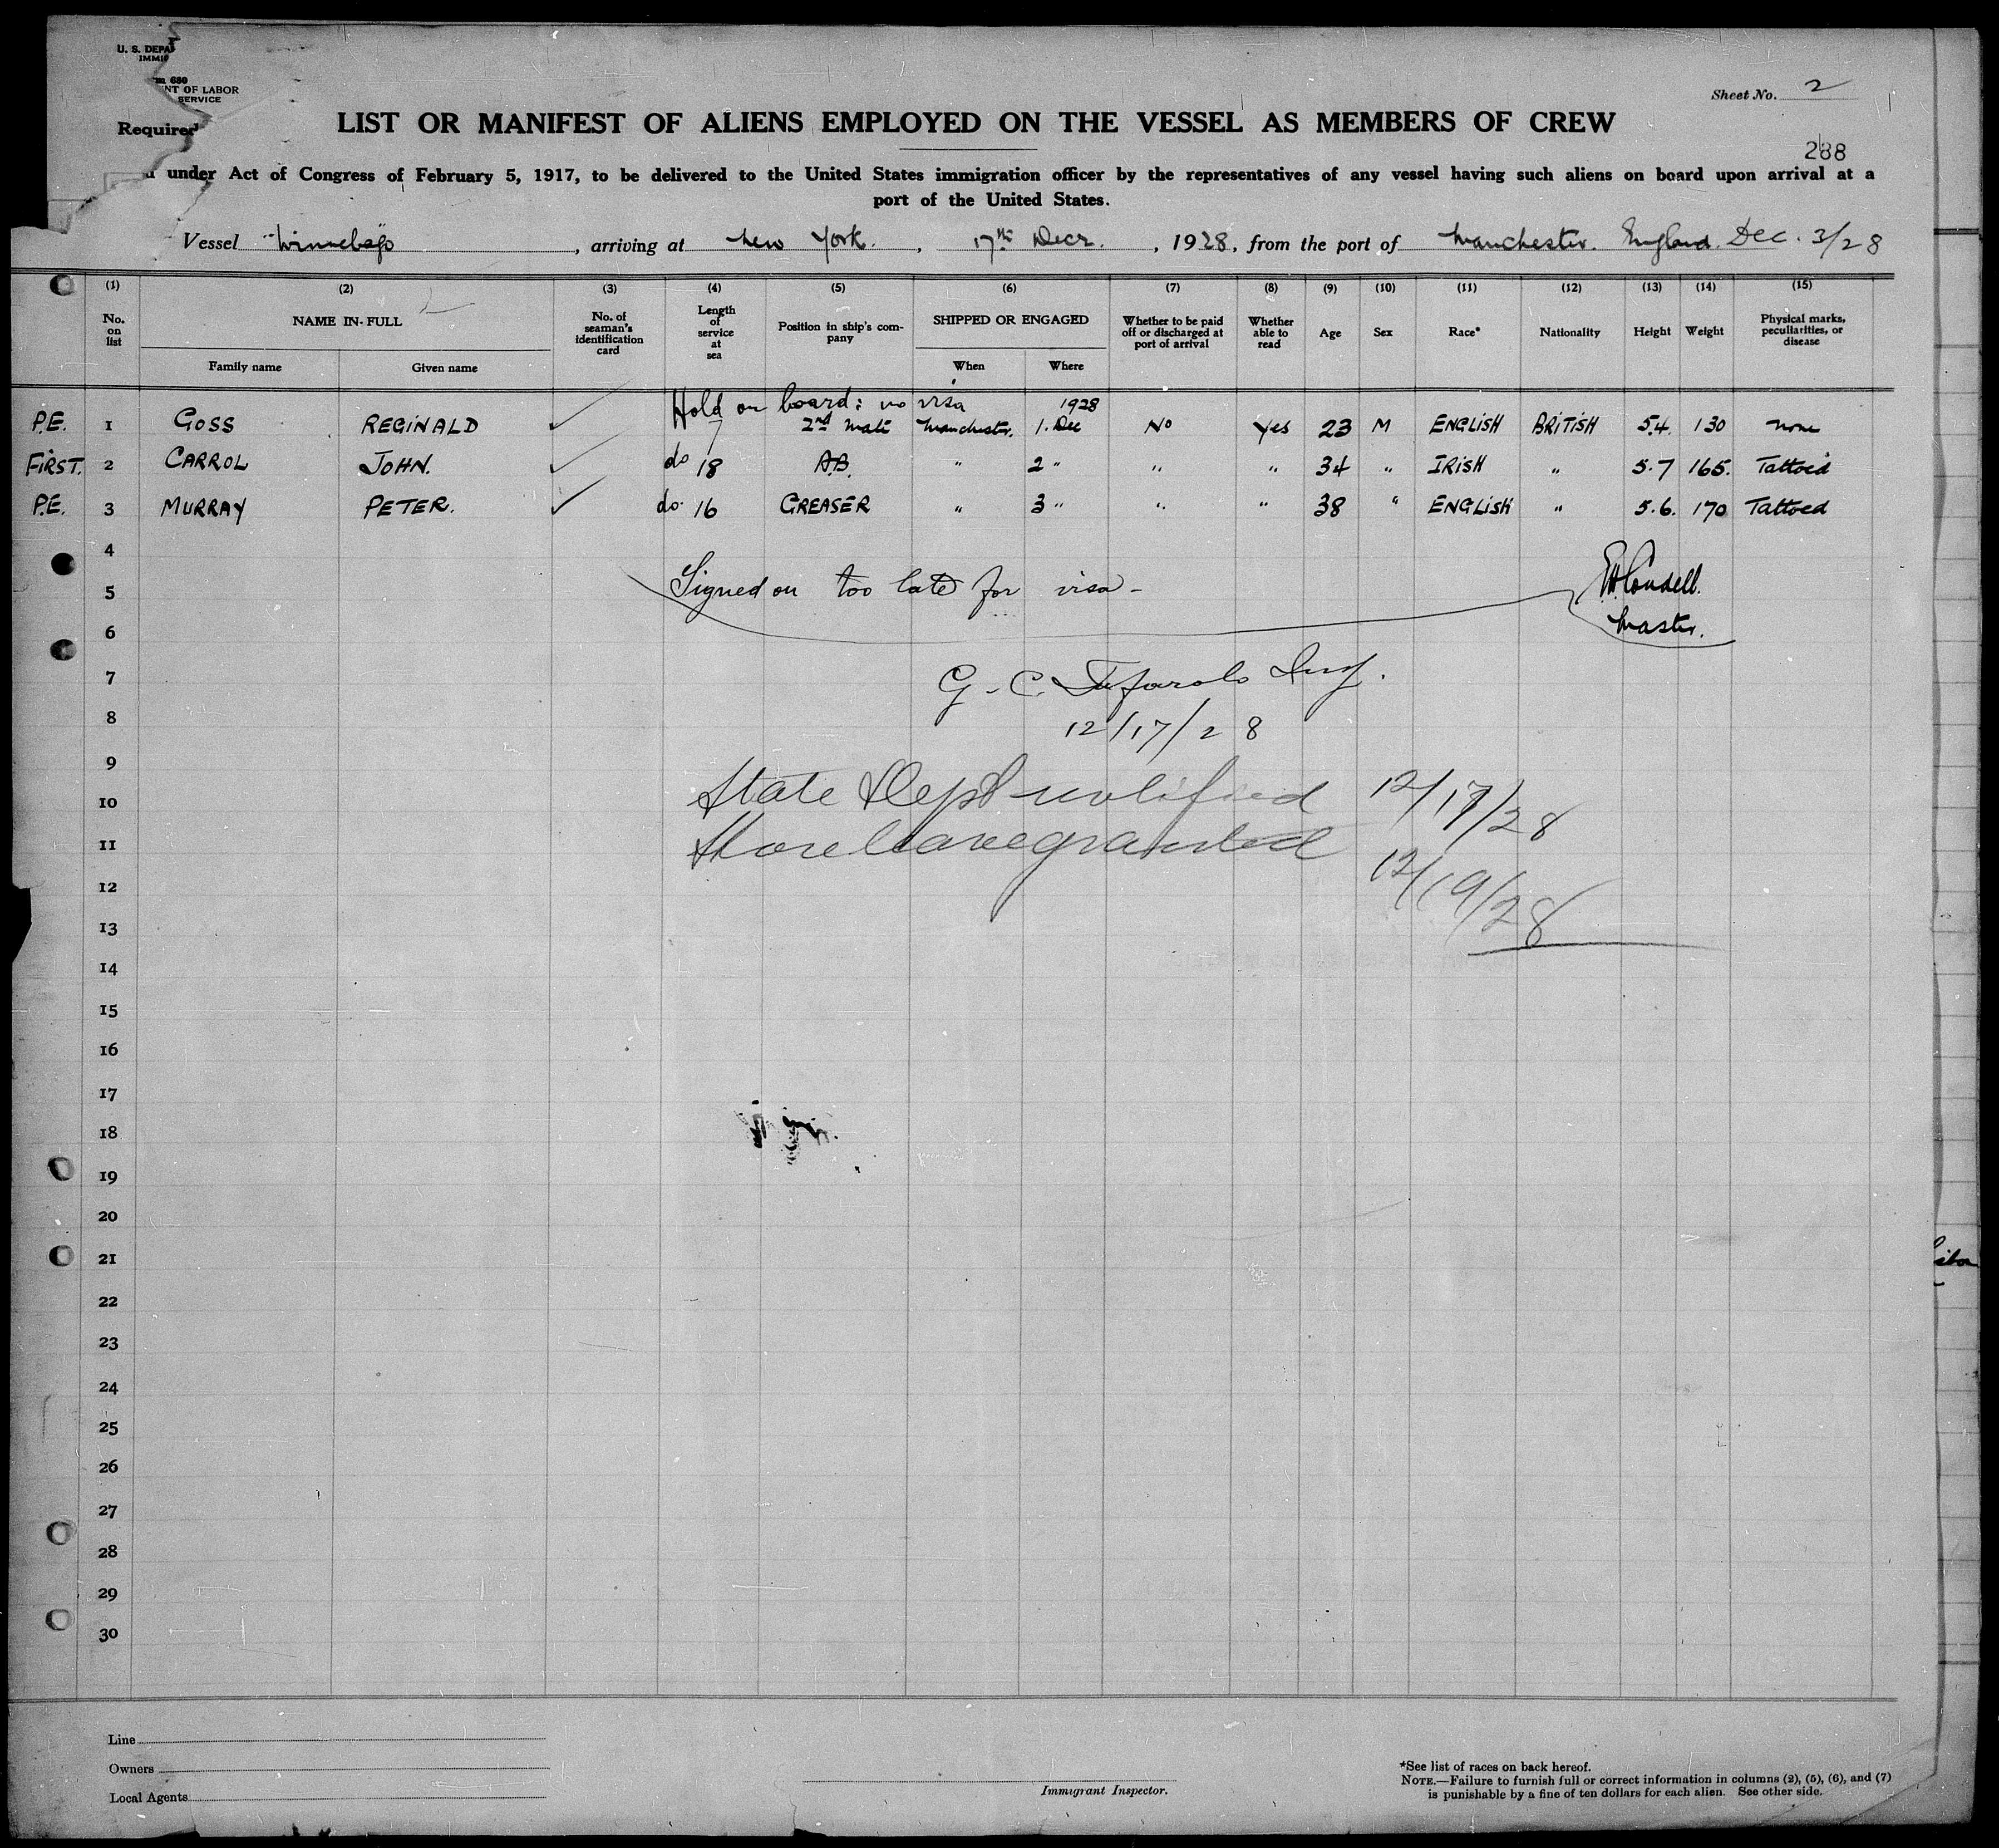 U. S. DEPA
IMMIG
m 680
NT OF LABOR
SERVICE
Sheet No. 2
LIST OR MANIFEST OF ALIENS EMPLOYED ON THE VESSEL AS MEMBERS OF CREW
288
Required
under Act of Congress of February 5, 1917, to be delivered to the United States immigration officer by the representatives of any vessel having such aliens on board upon arrival at a
port of the United States.
Vessel "Winnebago, arriving at New York., 17th Decr., 1928, from the port of Manchester. England. Dec. 3/28
(1) (2) (3) (4) (5) (6) (7) (8) (9) (10) (11) (12) (13) (14) (15)
No. on list NAME IN FULL No. of seaman's identification card Length of service at sea Position in ship's company SHIPPED OR ENGAGED Whether to be paid off or discharged at port of arrival Whether able to read Age Sex Race* Nationality Height Weight Physical marks, peculiarities, or disease
Family name Given name When Where
Hold on board: no visa 1928
P.E. 1 GOSS REGINALD 7 2nd Mate Manchester. 1. Dec No Yes 23 M ENGLISH BRITISH 5.4. 130 none
FIRST. 2 CARROL JOHN. do 18 A.B. " 2 " " " 34 " IRISH " 5.7 165. Tattoed
P.E. 3 MURRAY PETER. do. 16 GREASER " 3 " " " 38 " ENGLISH " 5.6. 170 Tattoed
4
5 Signed on too late for visa -
Master.
6
7 G. C.
8 12/17/28
9
10 State Dept notified 12/17/28
11 Shore leave granted 12/19/28
12
13
14
15
16
17
18
19
20
21
22
23
24
25
26
27
28
29
30
Line
Owners
Local Agents
Immigrant Inspector.
*See list of races on back hereof.
NOTE.—Failure to furnish full or correct information in columns (2), (5), (6), and (7)
is punishable by a fine of ten dollars for each alien. See other side.